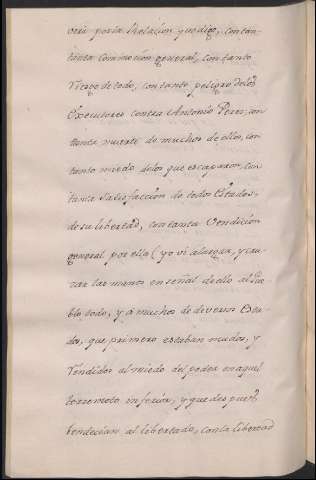 vera por la Relacion yo digo, con tan-
tanta comiocion general, con tanto
riezgo de todo, con tanto peligro delos
Executores contra Antonio Perez, con
tanta muerte de muchos de ellos, con
tanto miedo delos que escaparon, con
tanta satisfaccion de todos Estados,
de su libertad, con tanta vendicion
general por ella (yo vi alargar, y cru-
zar las manos en señal de ello al Pue-
blo todo, y a muchos de diversos Esta-
dos, que primero estaban mudos, y
rendidos al miedo del poder en aquel
terremoto inferior, y que despues
bendecian al libertado, con la libertad